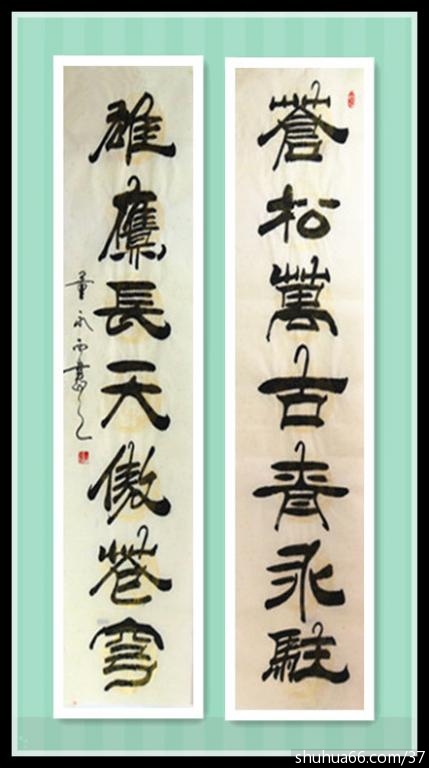 蒼松萬古青永駐
雄鷹長天傲苍穹
永西書
shuhua66.com/37